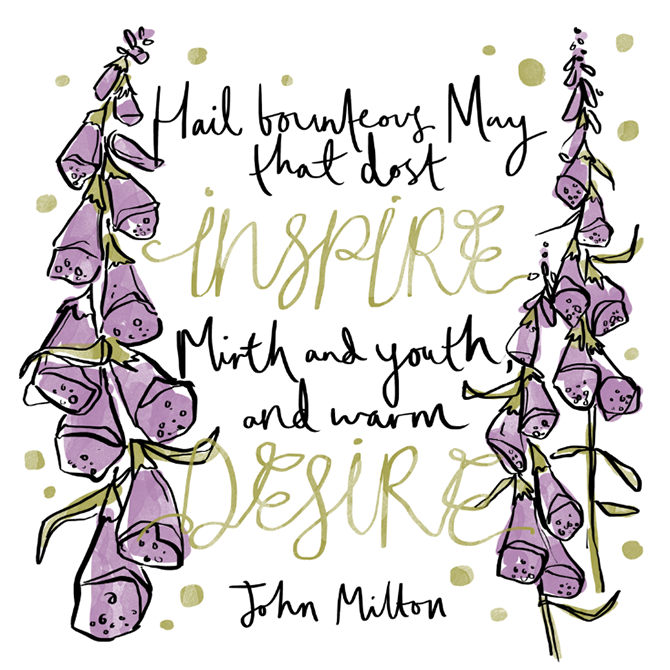 Hail bounteous May
that dost
INSPIRE
Mirth and youth,
and warm
DESIRE
John Milton